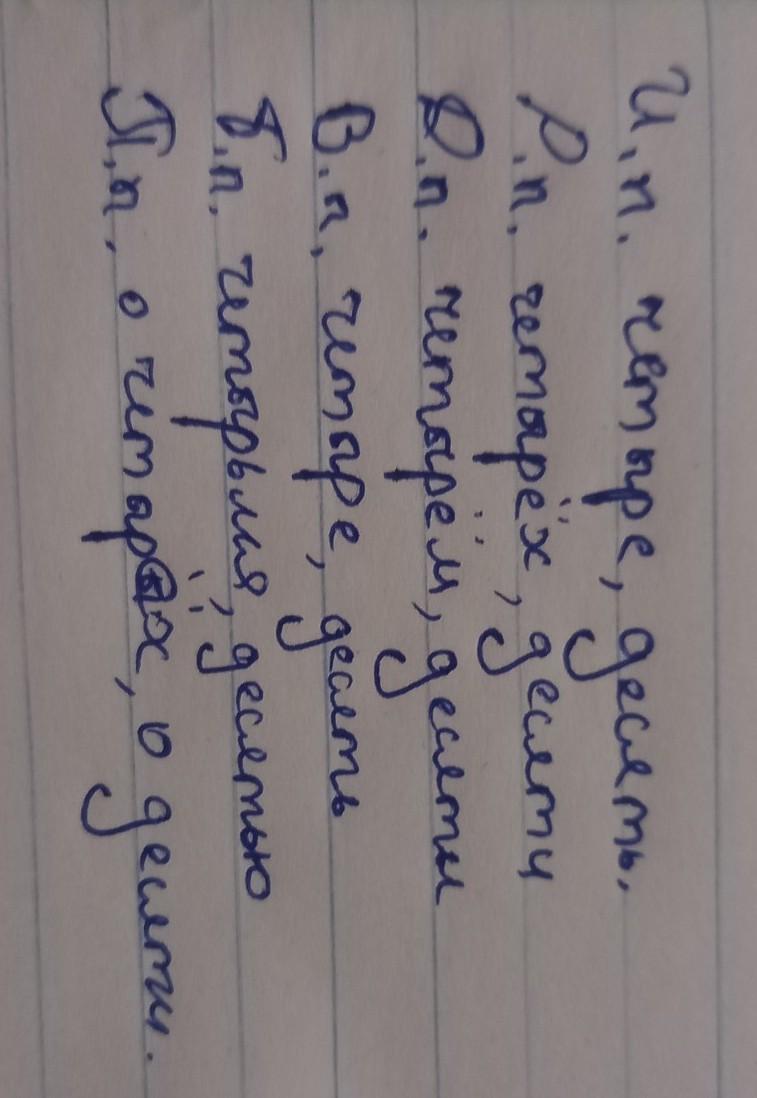 И.п. четыре, десять.
Р.п. четырёх, десяти
Д.п. четырём, десяти
В.п. четыре, десять
Т.п. четырьмя, десятью
П.п. о четырёх, о десяти.